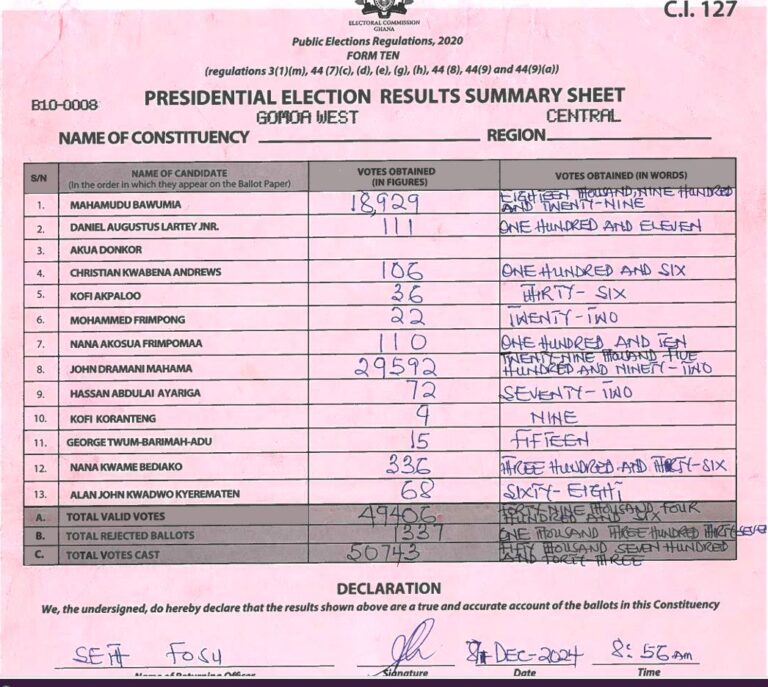 C.I. 127
ELECTORAL COMMISSION
GHANA
Public Elections Regulations, 2020
FORM TEN
(regulations 3(1)(m), 44 (7)(c), (d), (e), (g), (h), 44 (8), 44(9) and 44(9)(a))
B10-0008 PRESIDENTIAL ELECTION RESULTS SUMMARY SHEET
GOMOA WEST CENTRAL
NAME OF CONSTITUENCY REGION
S/N NAME OF CANDIDATE (In the order in which they appear on the Ballot Paper) VOTES OBTAINED (IN FIGURES) VOTES OBTAINED (IN WORDS)
1. MAHAMUDU BAWUMIA 18,929 EIGHTEEN THOUSAND, NINE HUNDRED AND TWENTY-NINE
2. DANIEL AUGUSTUS LARTEY JNR. 111 ONE HUNDRED AND ELEVEN
3. AKUA DONKOR
4. CHRISTIAN KWABENA ANDREWS 106 ONE HUNDRED AND SIX
5. KOFI AKPALOO 36 THIRTY-SIX
6. MOHAMMED FRIMPONG 22 TWENTY-TWO
7. NANA AKOSUA FRIMPOMAA 110 ONE HUNDRED AND TEN
8. JOHN DRAMANI MAHAMA 29592 TWENTY-NINE THOUSAND FIVE HUNDRED AND NINETY-TWO
9. HASSAN ABDULAI AYARIGA 72 SEVENTY-TWO
10. KOFI KORANTENG 9 NINE
11. GEORGE TWUM-BARIMAH-ADU 15 FIFTEEN
12. NANA KWAME BEDIAKO 336 THREE HUNDRED AND THIRTY-SIX
13. ALAN JOHN KWADWO KYEREMATEN 68 SIXTY-EIGHT
A. TOTAL VALID VOTES 49406 FORTY-NINE THOUSAND FOUR HUNDRED AND SIX
B. TOTAL REJECTED BALLOTS 1337 ONE THOUSAND THREE HUNDRED THIRTY-SEVEN
C. TOTAL VOTES CAST 50743 FIFTY THOUSAND SEVEN HUNDRED AND FORTY THREE
DECLARATION
We, the undersigned, do hereby declare that the results shown above are a true and accurate account of the ballots in this Constituency
SETH FOSU 8TH DEC-2024 8:56 AM
Name of Returning Officer Signature Date Time